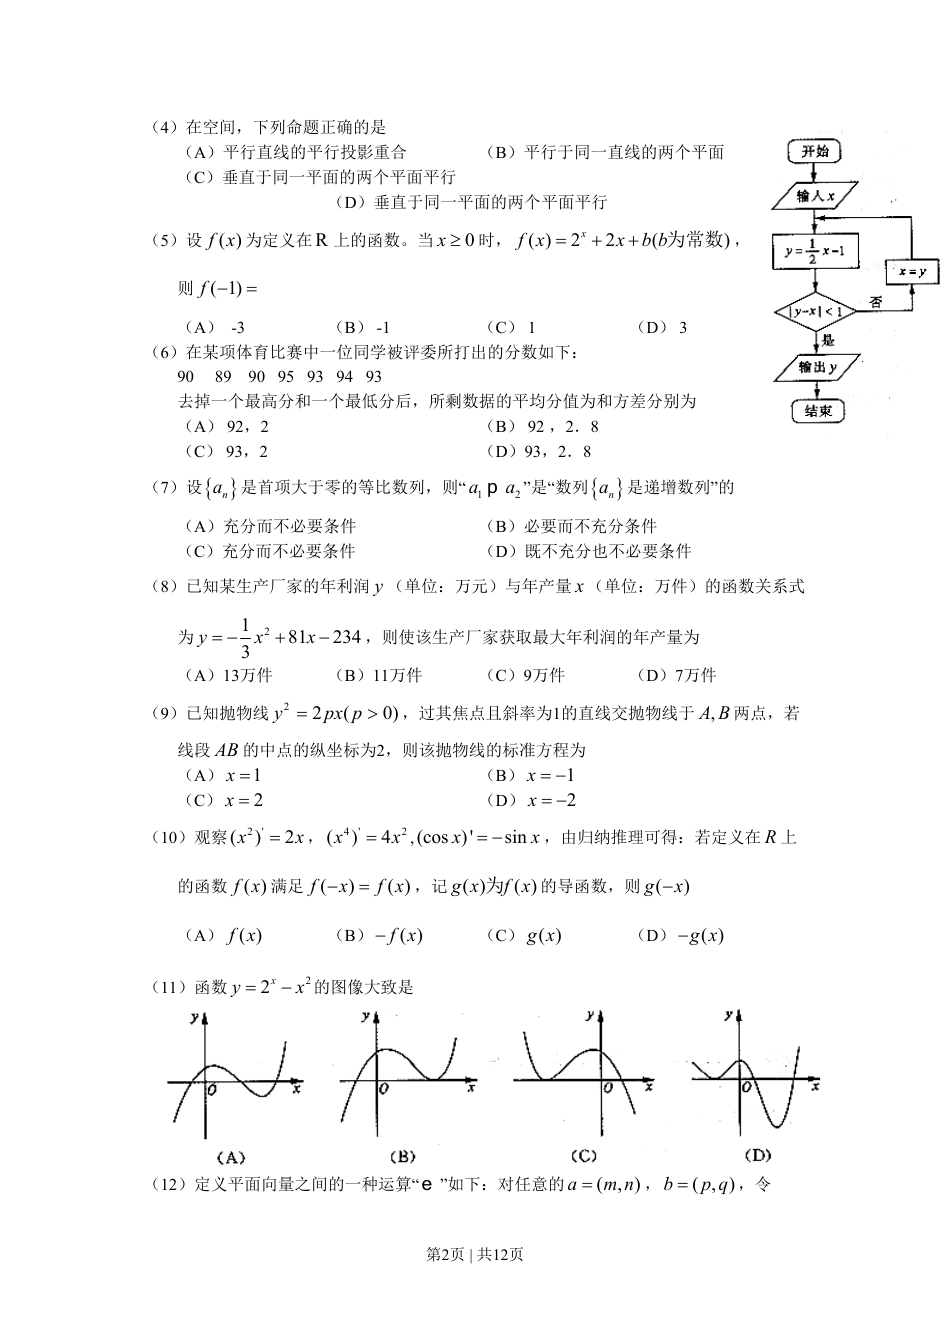 （4）在空间，下列命题正确的是
（A）平行直线的平行投影重合 （B）平行于同一直线的两个平面
（C）垂直于同一平面的两个平面平行
（D）垂直于同一平面的两个平面平行
（5）设 f(x) 为定义在 R 上的函数。当 x ≥ 0 时， f(x) = 2^x + 2x + b(b为常数)，
则 f(−1) =
（A） -3 （B） -1 （C） 1 （D） 3
（6）在某项体育比赛中一位同学被评委所打出的分数如下：
90 89 90 95 93 94 93
去掉一个最高分和一个最低分后，所剩数据的平均分值为和方差分别为
（A） 92，2 （B） 92 ，2．8
（C） 93，2 （D）93，2．8
开始
输入 x
y=1/2 x−1
x=y
|y−x|<1
否
是
输出 y
结束
（7）设 {a_n} 是首项大于零的等比数列，则“ a_1 p a_2 ”是“数列 {a_n} 是递增数列”的
（A）充分而不必要条件 （B）必要而不充分条件
（C）充分而不必要条件 （D）既不充分也不必要条件
（8）已知某生产厂家的年利润 y （单位：万元）与年产量 x （单位：万件）的函数关系式
为 y = −1/3 x² + 81x − 234 ，则使该生产厂家获取最大年利润的年产量为
（A）13万件 （B）11万件 （C）9万件 （D）7万件
（9）已知抛物线 y² = 2px(p > 0) ，过其焦点且斜率为1的直线交抛物线于 A, B 两点，若
线段 AB 的中点的纵坐标为2，则该抛物线的标准方程为
（A） x = 1 （B） x = −1
（C） x = 2 （D） x = −2
（10）观察 (x²)' = 2x ， (x⁴)' = 4x² ,(cos x)' = −sin x ，由归纳推理可得：若定义在 R 上
的函数 f(x) 满足 f(−x) = f(x) ，记 g(x)为f(x) 的导函数，则 g(−x)
（A） f(x) （B） −f(x) （C） g(x) （D） −g(x)
（11）函数 y = 2^x − x² 的图像大致是
y y y y
O x O x O x O x
(A) (B) (C) (D)
（12）定义平面向量之间的一种运算“ e ”如下：对任意的 a = (m, n) ， b = (p, q) ，令
第2页 | 共12页